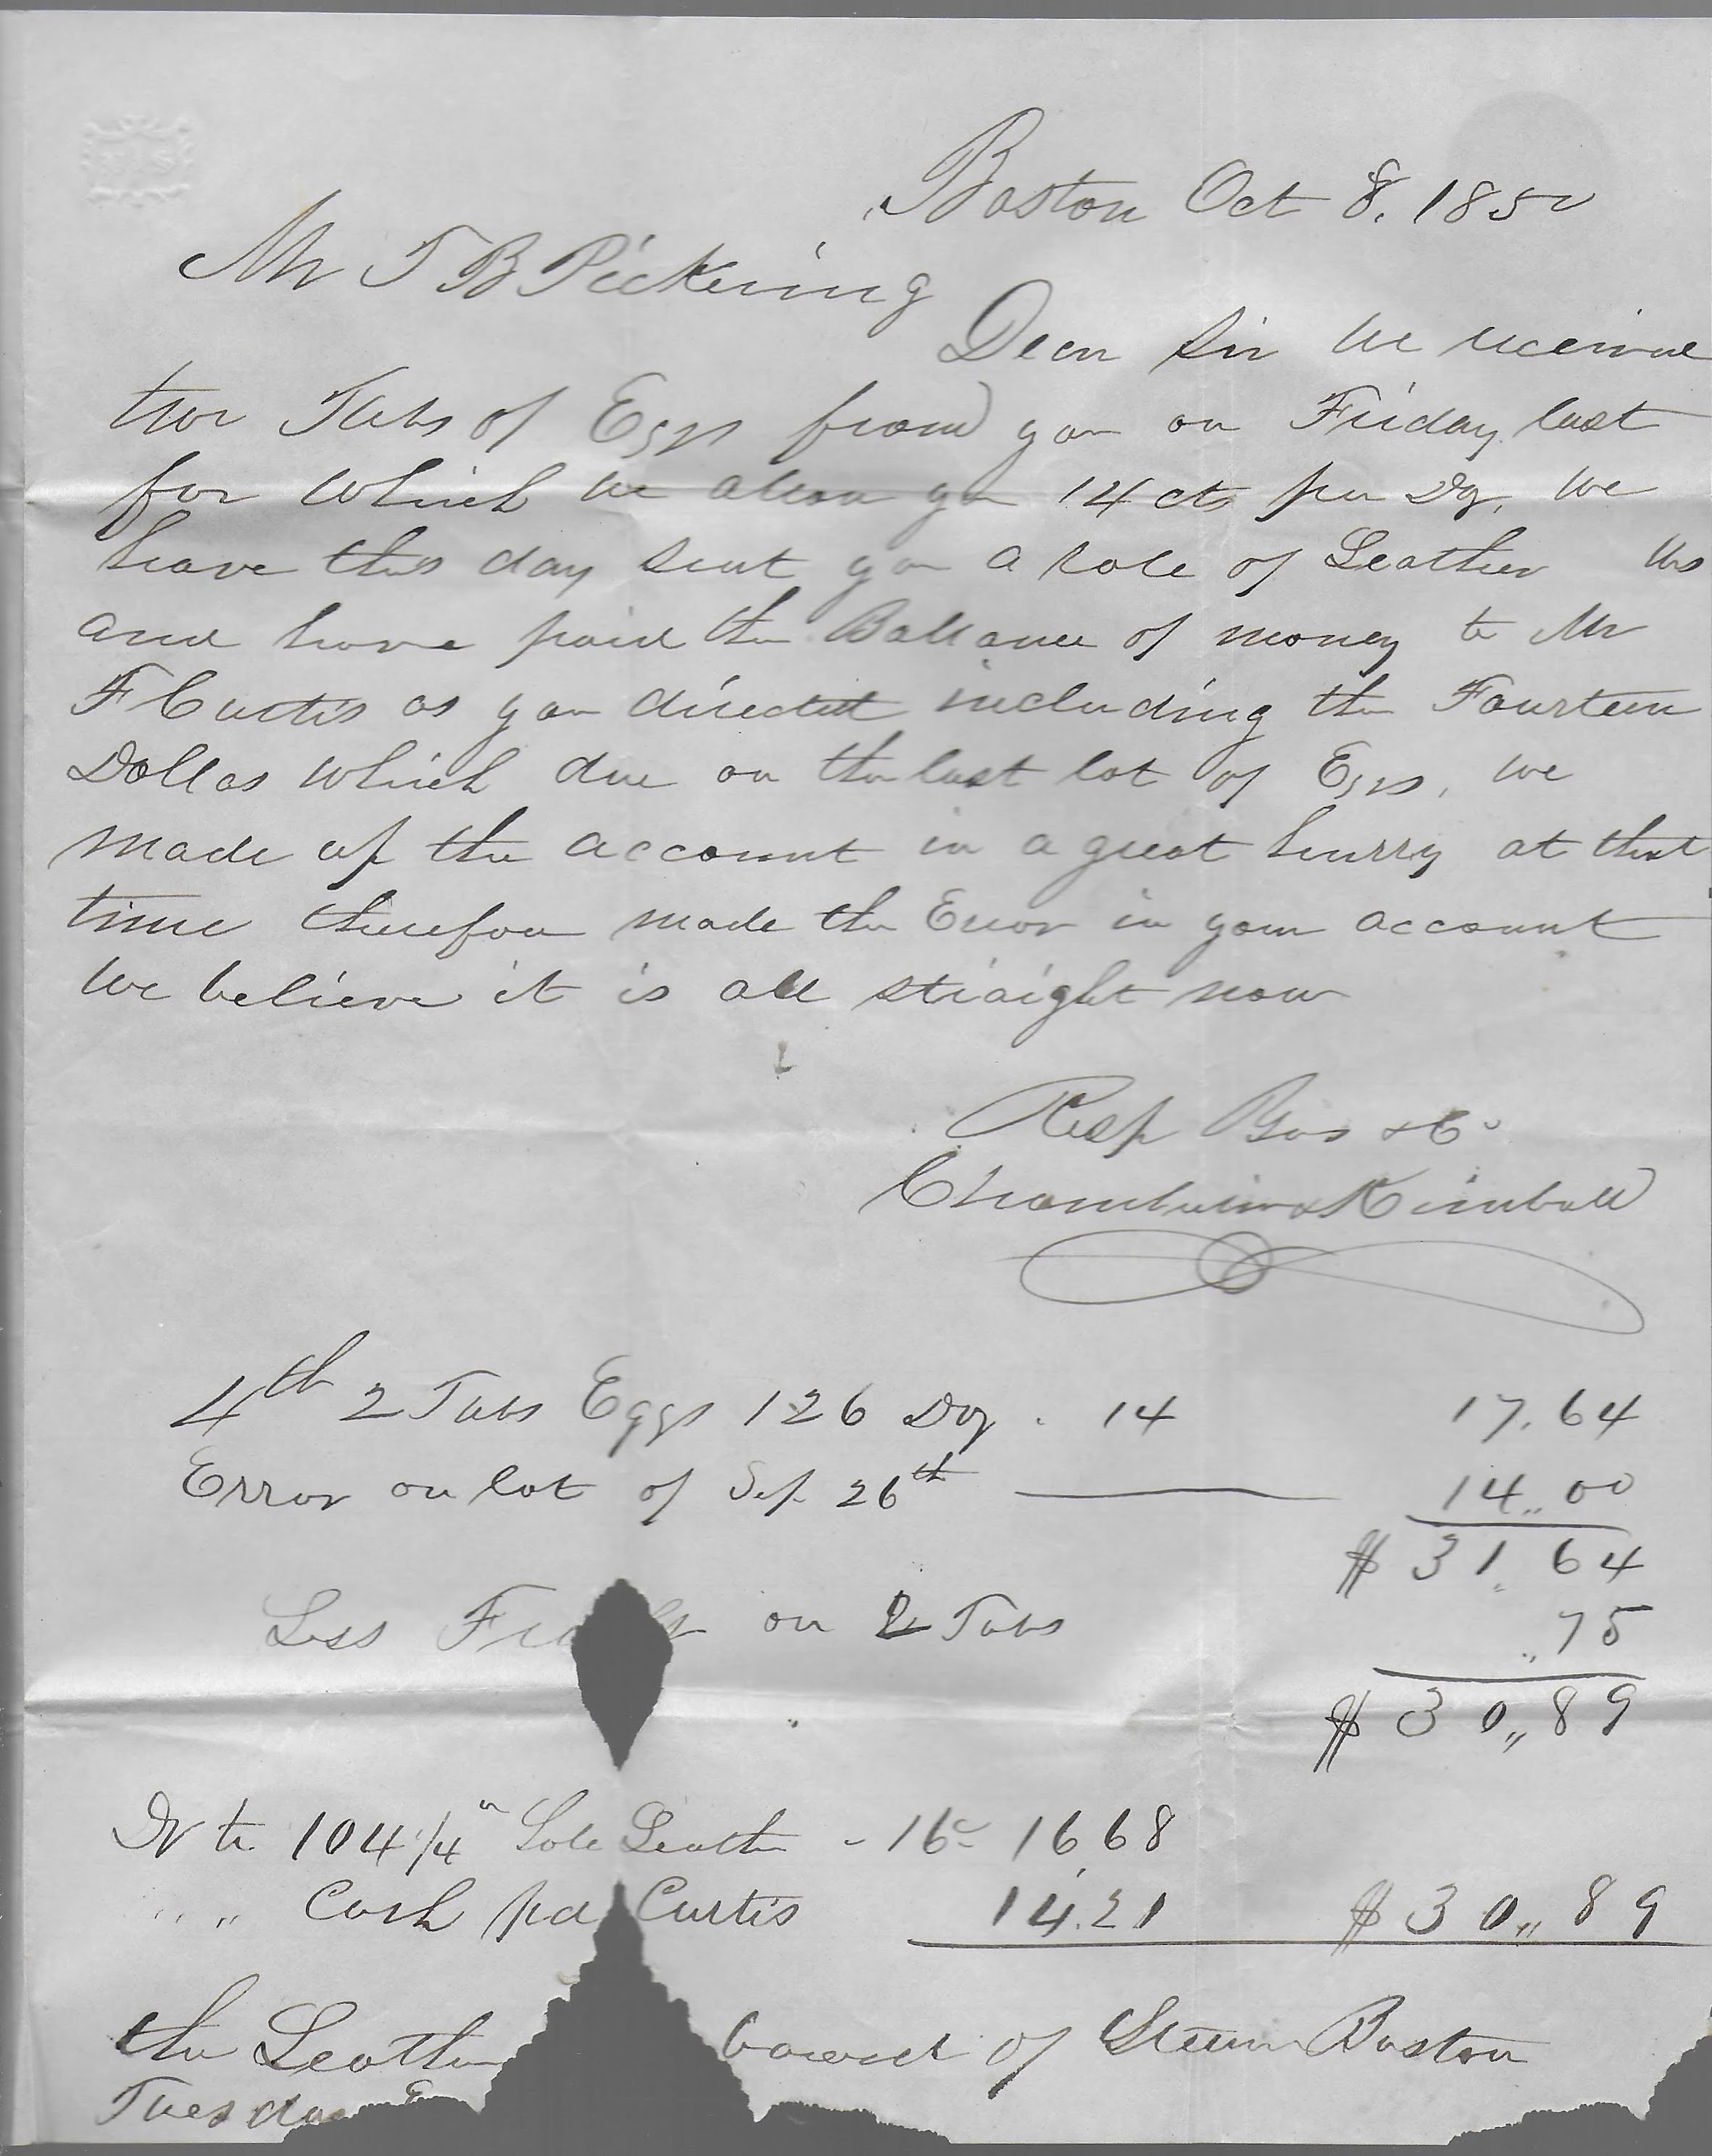 Boston Oct 8. 1850
Mr T B Pickering
Dear Sir we received
two Tubs of Eggs from you on Friday last
for which we allow you 14 cts per Doz, we
have this day sent you a role of Leather
and have paid the Ballance of money to Mr
F Curtis as you directed including the Fourteen
Dollas which due on the last lot of Eggs, we
made up the account in a great hurry at that
time therefore made the Error in your account
we believe it is all straight now
Resp
Chamberlin & Kimball
4th 2 Tubs Eggs 126 Doz. 14 17.64
Error on lot of Sep 26th 14,,00
$ 31,,64
Less on 2 Tubs ,,75
$ 30,,89
Dr to 104 1/4 Sole Leather - 16c 16,68
,, ,, Cash pd Curtis 14.21 $ 30,,89
the Leather of Steam Boston
Tuesday